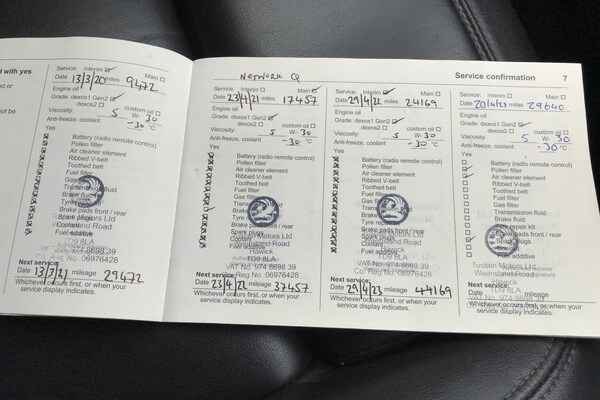 d with yes
d or
ot be
Service: Interim Main
Date 13/3/20 miles 9472
Engine oil
Grade: dexos1 Gen2
dexos2 custom oil
Viscosity: 5 W- 30
Anti-freeze, coolant -30 °C
Yes
Battery (radio remote control)
Pollen filter
Air cleaner element
Ribbed V-belt
Toothed belt
Fuel filter
Brake pads front / rear
Spark plugs
Coolant
Fuel additive
TD9 8LA
VAT No. 974 8698 39
Co. Reg No. 06976428
Next service:
Date 13/3/21 mileage 29472
Whichever occurs first, or when your
service display indicates.
NETWORK Q
Service: Interim Main
Date 23/4/21 miles 17457
Engine oil
Grade: dexos1 Gen2
dexos2 custom oil
Viscosity: 5 W- 30
Anti-freeze, coolant -30 °C
Yes
Battery (radio remote control)
Pollen filter
Air cleaner element
Ribbed V-belt
Toothed belt
Fuel filter
Motors Ltd
Road
Hawick
TD9 8LA
VAT No. 974 8698 39
Co. Reg No. 06976428
Next service:
Date 23/4/22 mileage 37457
Whichever occurs first, or when your
service display indicates.
Service: Interim Main
Date 29/4/22 miles 24169
Engine oil
Grade: dexos1 Gen2
dexos2 custom oil
Viscosity: 5 W- 30
Anti-freeze, coolant -30 °C
Yes
Battery (radio remote control)
Pollen filter
Air cleaner element
Ribbed V-belt
Toothed belt
Fuel filter
Motors Ltd
Road
Hawick
TD9 8LA
VAT No. 974 8698 39
Co. Reg No. 06976428
Next service:
Date 29/4/23 mileage 44169
Whichever occurs first, or when your
service display indicates.
Service confirmation 7
Service: Interim Main
Date 20/4/23 miles 29640
Engine oil
Grade: dexos1 Gen2
dexos2 custom oil
Viscosity: 5 W- 30
Anti-freeze, coolant -30 °C
Yes
Battery (radio remote control)
Pollen filter
Air cleaner element
Ribbed V-belt
Toothed belt
Fuel filter
Gas filter
Transmission fluid
Brake fluid
Tyre repair kit
Brake pads front / rear
Spark plugs
Coolant
Fuel additive
Motors Ltd
Road
Hawick
TD9 8LA
Next service:
Date mileage
VAT No. 974 8698 39
Whichever occurs first, or when your
service display indicates.